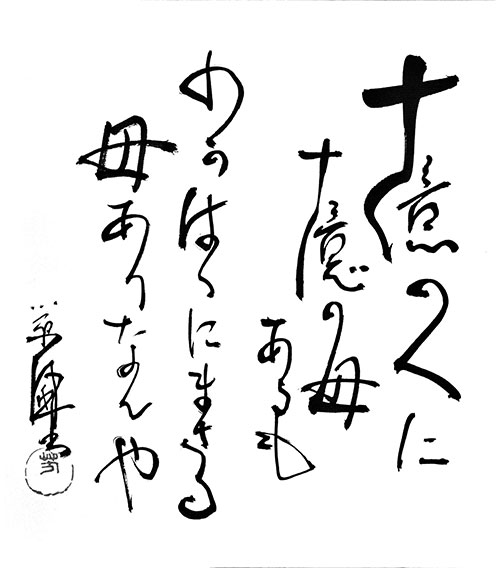 十億の人に
十億の母
あるも
わがはゝにまさる
母ありなんや